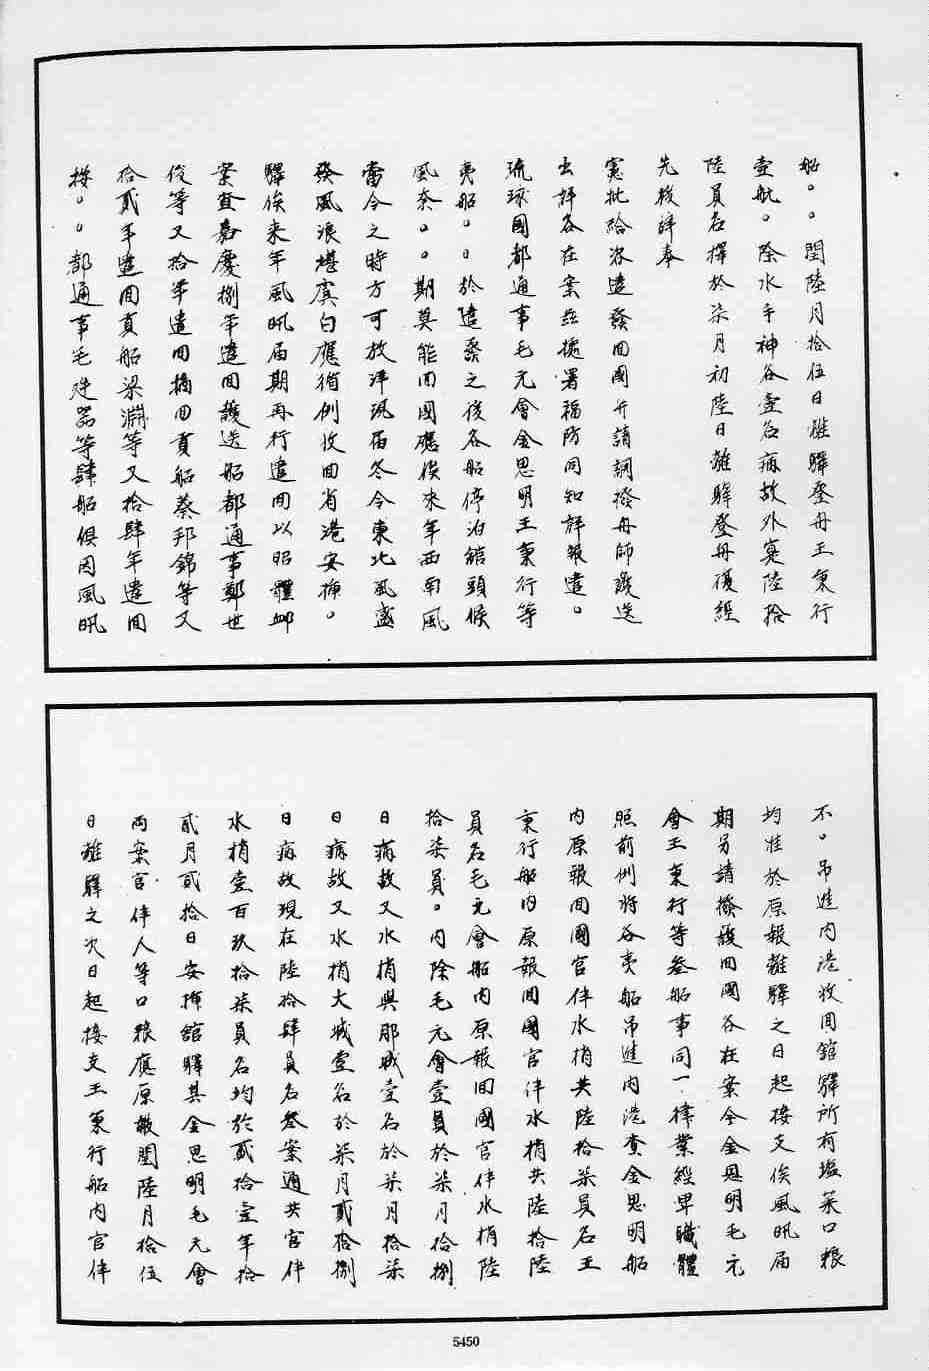 船。。閏陸月拾伍日離驛登舟王秉行
壹船。除水手神谷壹名病故外寔陸拾
陸員名擇於柒月初陸日離驛登舟復經
先後詳奉
憲批給咨遣發回國并請調撥舟師護送
出詳各在案茲據署福防同知詳報遣。
琉球國都通事毛元會金思明王秉行等
夷船。。於遣發之後各船停泊館頭候
風奈。。期莫能回國應俟來年西南風
當令之時方可放洋現届冬令東北風盛
發風浪堪虞自應循例收回省港安揷。
驛俟来年風帆届期再行遣回以昭體卹
案查嘉慶捌年遣回護送船都通事鄭世
俊等又拾年遣回摘回貢船蔡邦錦等又
拾貳年遣回貢船梁淵等又拾肆年遣回
接。。都通事毛廷器等肆船俱因風帆
不。吊進内港收回館驛所有塩菜口粮
均准於原報離驛之日起接支俟風帆届
期另請撥護回國各在案今金思明毛元
會王秉行等叄船事同一律業經卑職體
照前例將各夷船吊進内港查金思明船
内原報回國官伴水梢共陸拾柒員名王
秉行船内原報回國官伴水梢共陸拾陸
員名毛元會船内原報回國官伴水梢陸
拾柒員。内除毛元會壹員於柒月拾捌
日病故又水梢與那城壹名於柒月拾柒
日病故又水梢大城壹名於柒月貳拾捌
日病故現在陸拾肆員名叄案通共官伴
水梢壹百玖拾柒員名均於貳拾壹年拾
貳月貳拾日安揷館驛其金思明毛元會
兩案官伴人等口粮應原報閏陸月拾伍
日離驛之次日起接支王秉行船内官伴
5450